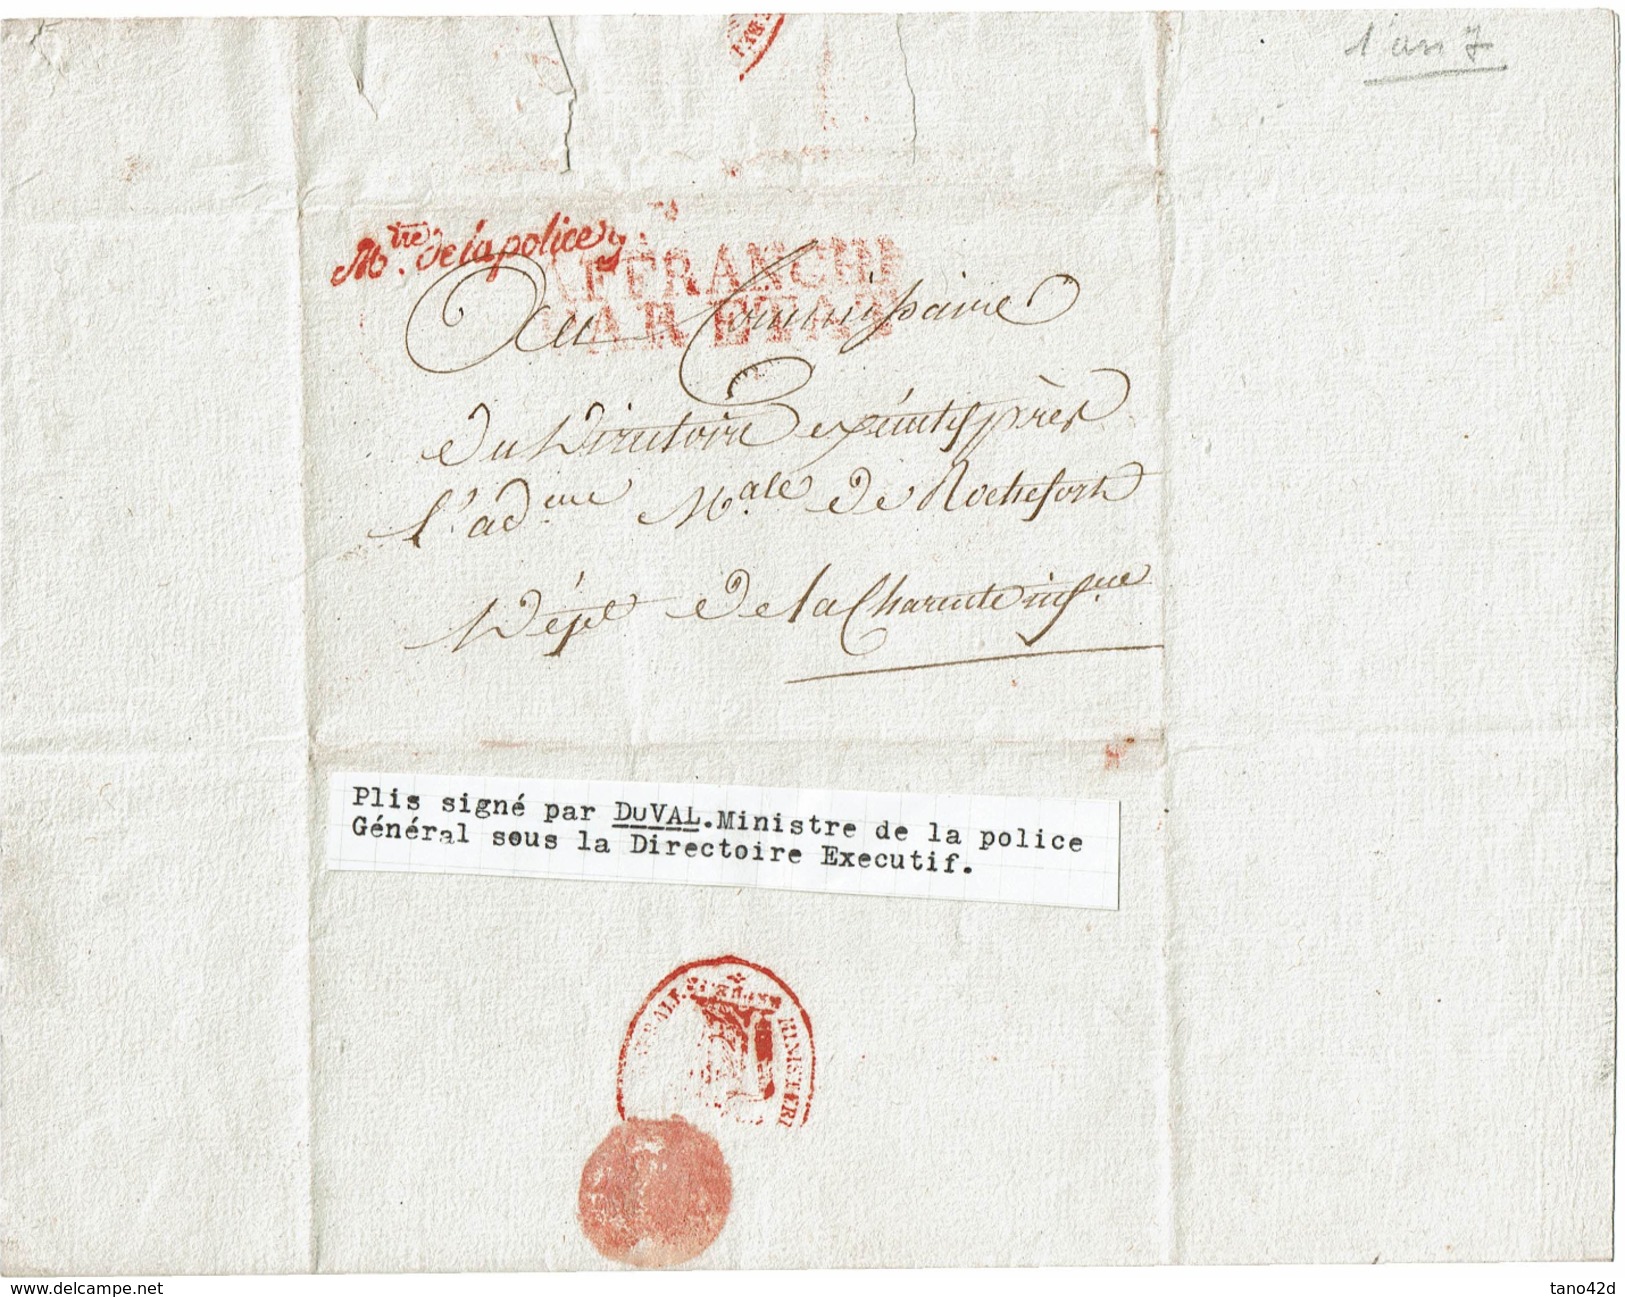 1 an 7
PAR E
Mtre. de la police g.
AFFRANCHI
PAR ETAT
Au Commissaire
du Directoire exécutif près
l'adme. Male. de Rochefort
Dépt. de la Charente infrue
Plis signé par DuVAL.Ministre de la police
Général sous la Directoire Executif.
MINISTERE
delcampe.net
tano42d